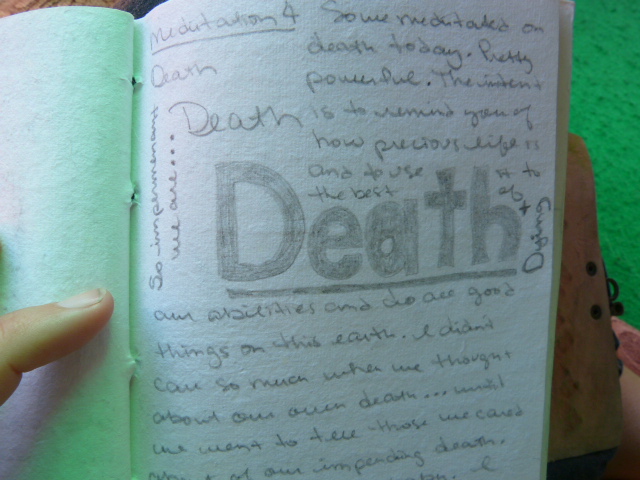 Meditation 4
Death
Death
So impermenant
we are...
Some meditated on
death today. Pretty
powerful. The intent
is to remind you of
how precious life is
and to use it to
the best of
Death
+ Dying
our abilities and do all good
things on this earth. I didn't
care so much when we thought
about our own death... until
we went to tell those we cared
about of our impending death.
I